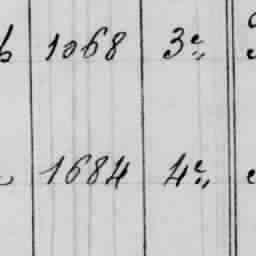 1068 3e
1684 4e